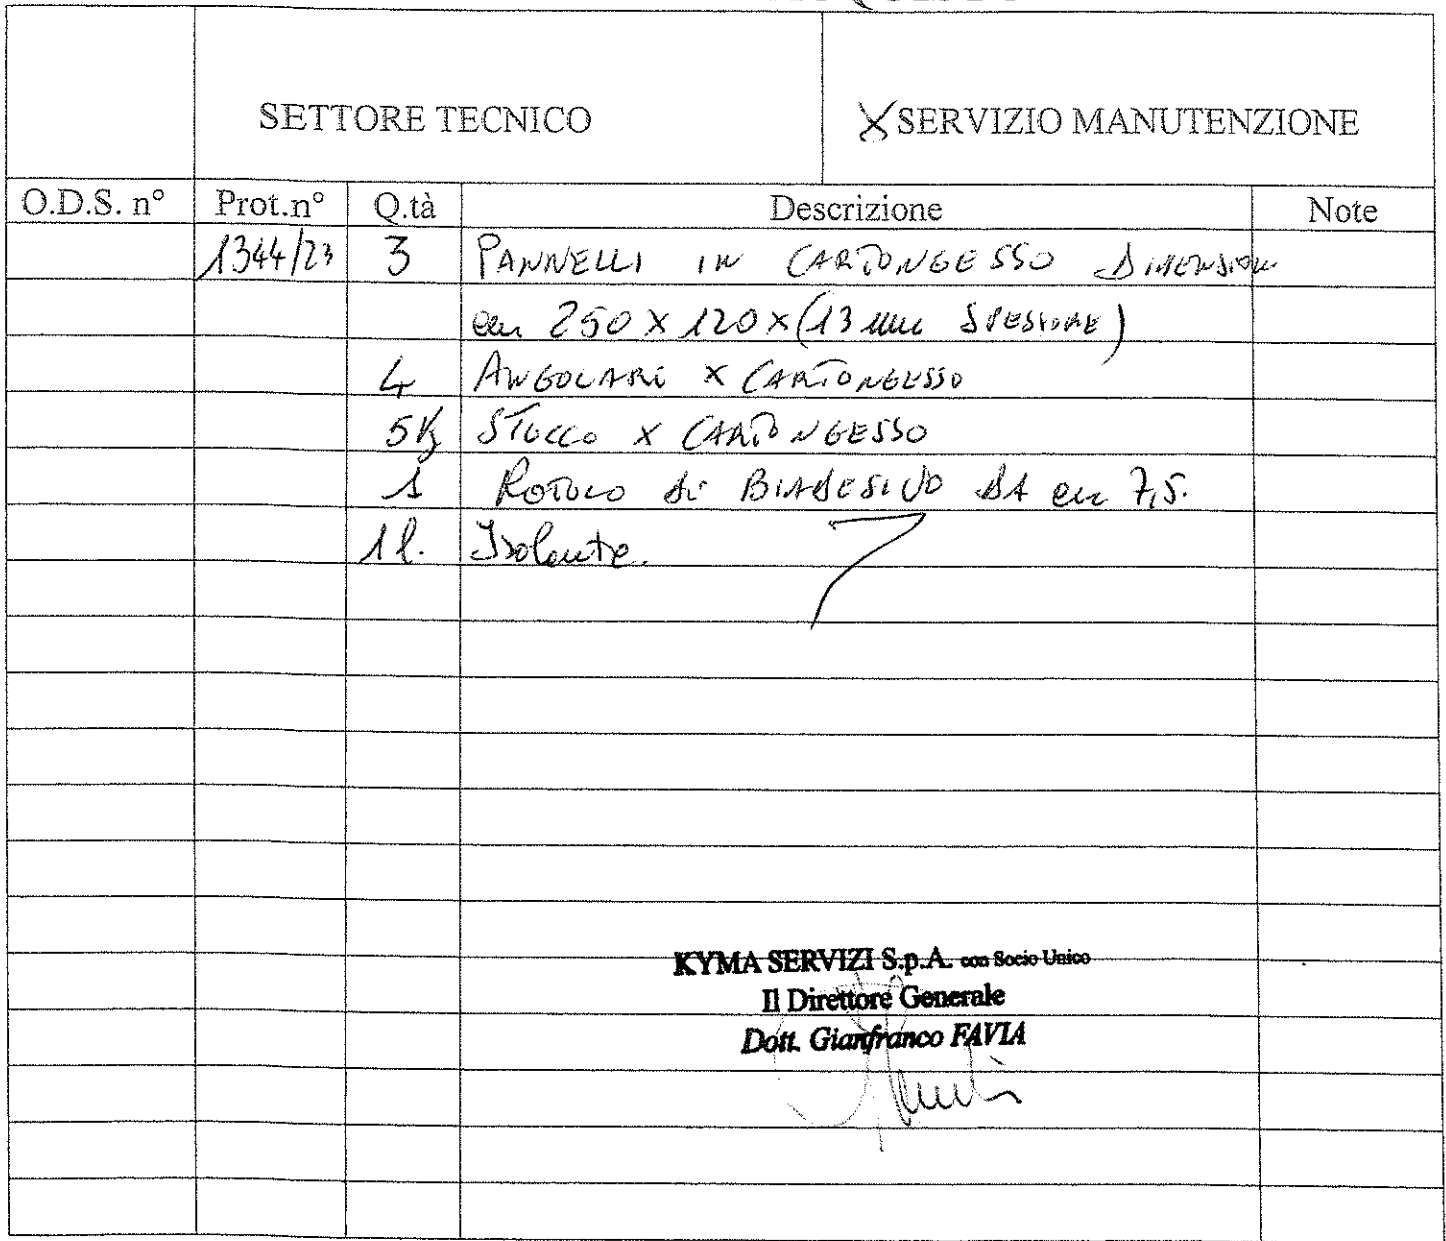 SETTORE TECNICO
X SERVIZIO MANUTENZIONE
O.D.S. n° Prot.n° Q.tà Descrizione Note
1344/23 3 PANNELLI IN CARTONGESSO DIMENSION
cm 250 X 120 X (13 mm SPESSORE)
4 ANGOLARI X CARTONGESSO
5 Kg STUCCO X CARTONGESSO
1 ROTOLO di BIADESIVO DA cm 7,5.
1 l. Isolante.
KYMA SERVIZI S.p.A. con Socio Unico
Il Direttore Generale
Dott. Gianfranco FAVIA